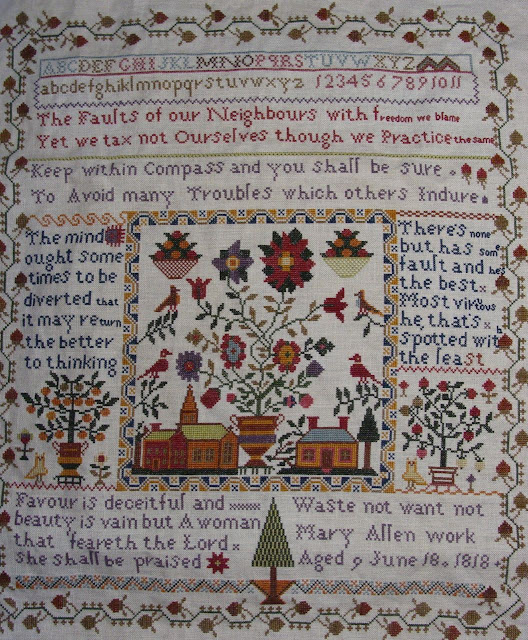 ABCDEFGHIJKLMNOPQRSTUVWXYZ
abcdefghiklmnopqrstuvwxyz 1234567891011
The Faults of our Neighbours with freedom we blame
Yet we tax not Ourselves though we Practice the same
Keep within Compass and you shall be sure
To Avoid many Troubles which others Indure
The mind
ought some
times to be
diverted that
it may return
the better
to thinking
There's none
but has some
fault and he's
the best
Most virtuous
he, that's
spotted with
the least
Favour is deceitful and
beauty is vain but A woman
that feareth the Lord
she shall be praised
Waste not want not
Mary Allen work
Aged 9 June 18. 1818.